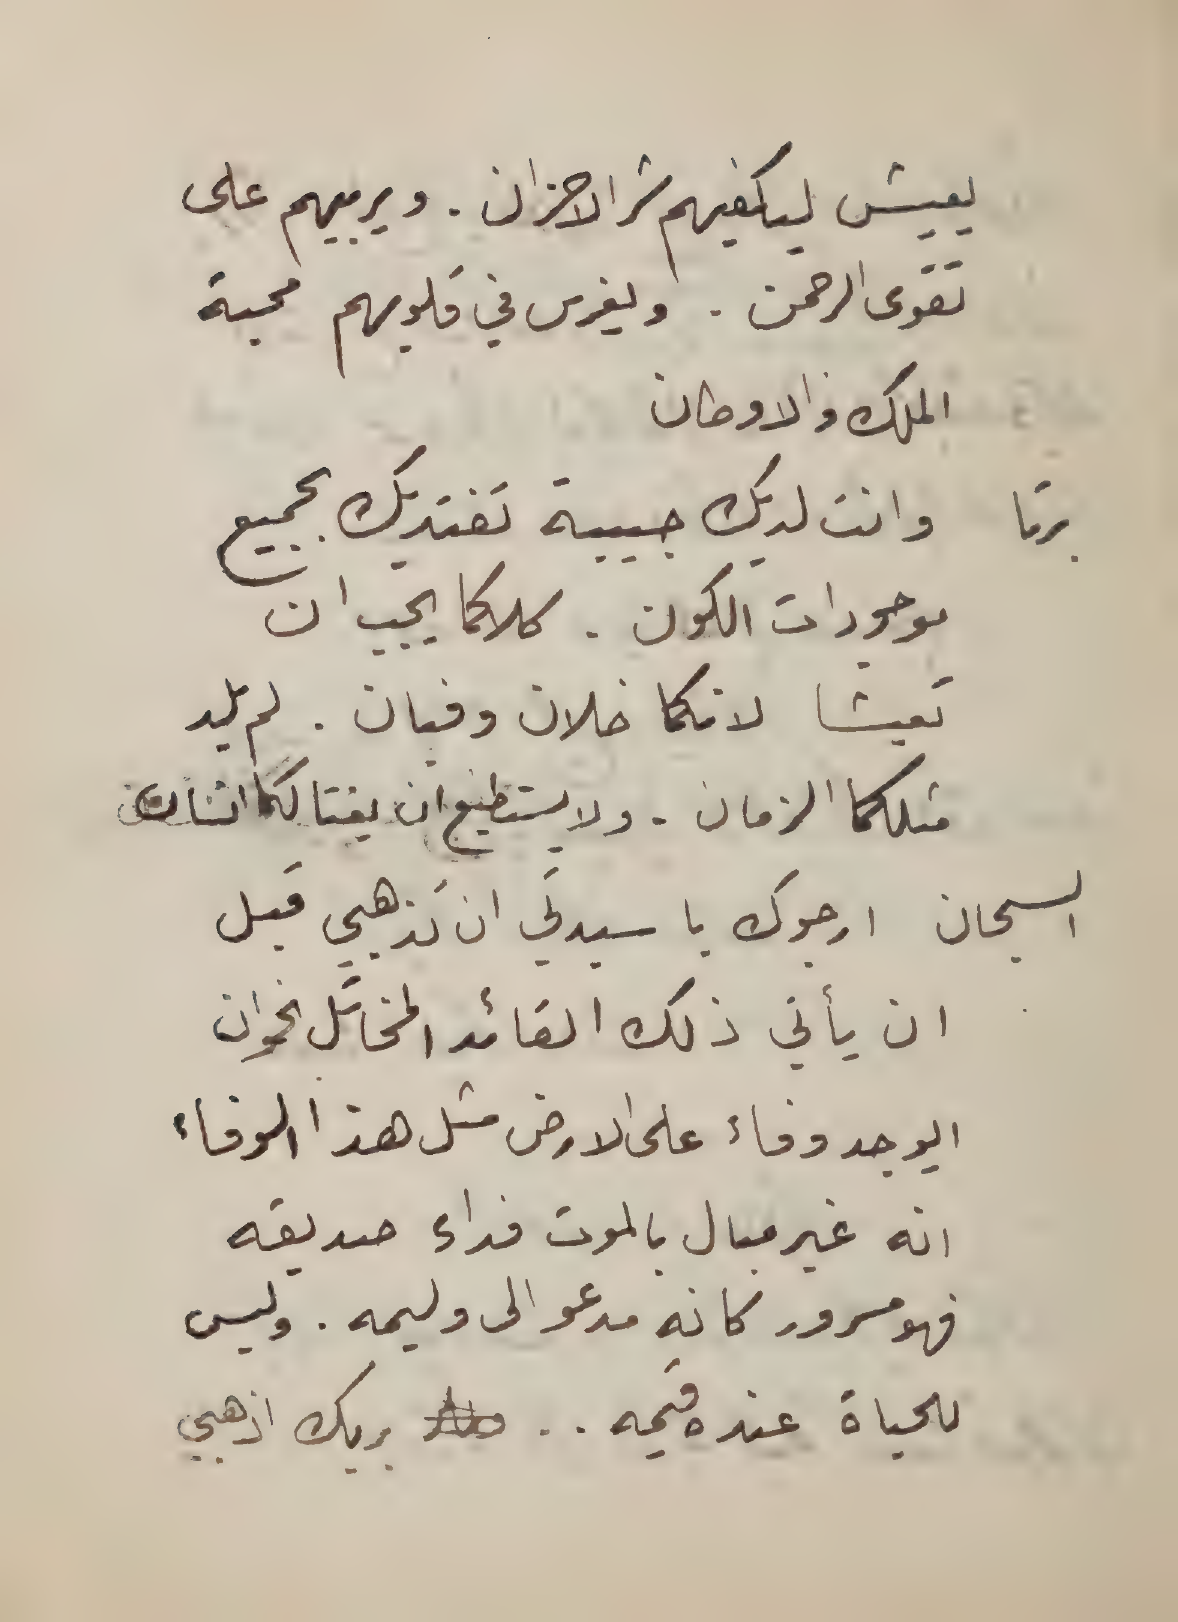 يعيش ليكفيهم شر الاحزان . ويربيهم على
تقوى الرحمن . ويغرس في قلوبهم محبة
الملك والاوطان
برتا وانت لديك حبيبة تفتديك بجميع
موجودات الكون . كلاكما يجب ان
تعيشا لانكما خلان وفيان . لم يلد
مثلكما الزمان . ولا يستطيع ان يغتالكما
السجان ارجوك يا سيدتي ان تذهبي قبل
ان يأتي ذلك القائد المخاتل الخوان
ايوجد وفاء على الارض مثل هذا الوفاء
انه غير مبال بالموت فداء صديقه
فهو مسرور كانه مدعو الى وليمه . وليس
للحياة عنده قيمه . . بربك اذهبي